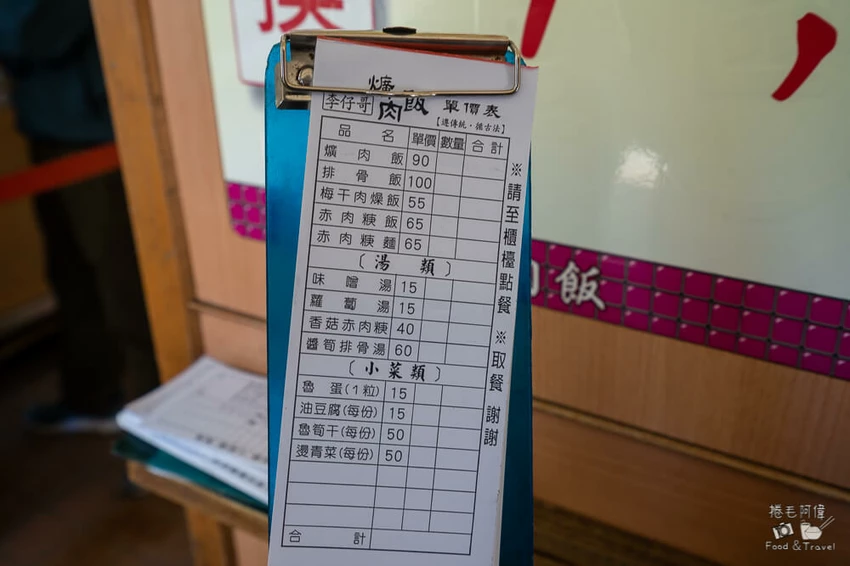 爌肉飯 單價表
李仔哥
【遵傳統・循古法】
品名 單價 數量 合計
爌肉飯 90
排骨飯 100
梅干肉燥飯 55
赤肉粳飯 65
赤肉粳麵 65
〔湯類〕
味噌湯 15
蘿蔔湯 15
香菇赤肉粳 40
醬筍排骨湯 60
〔小菜類〕
魯蛋(1粒) 15
油豆腐(每份) 15
魯筍干(每份) 50
燙青菜(每份) 50
合計
※請至櫃檯點餐 ※取餐 謝謝
肉飯
捲毛阿偉
Food & Travel